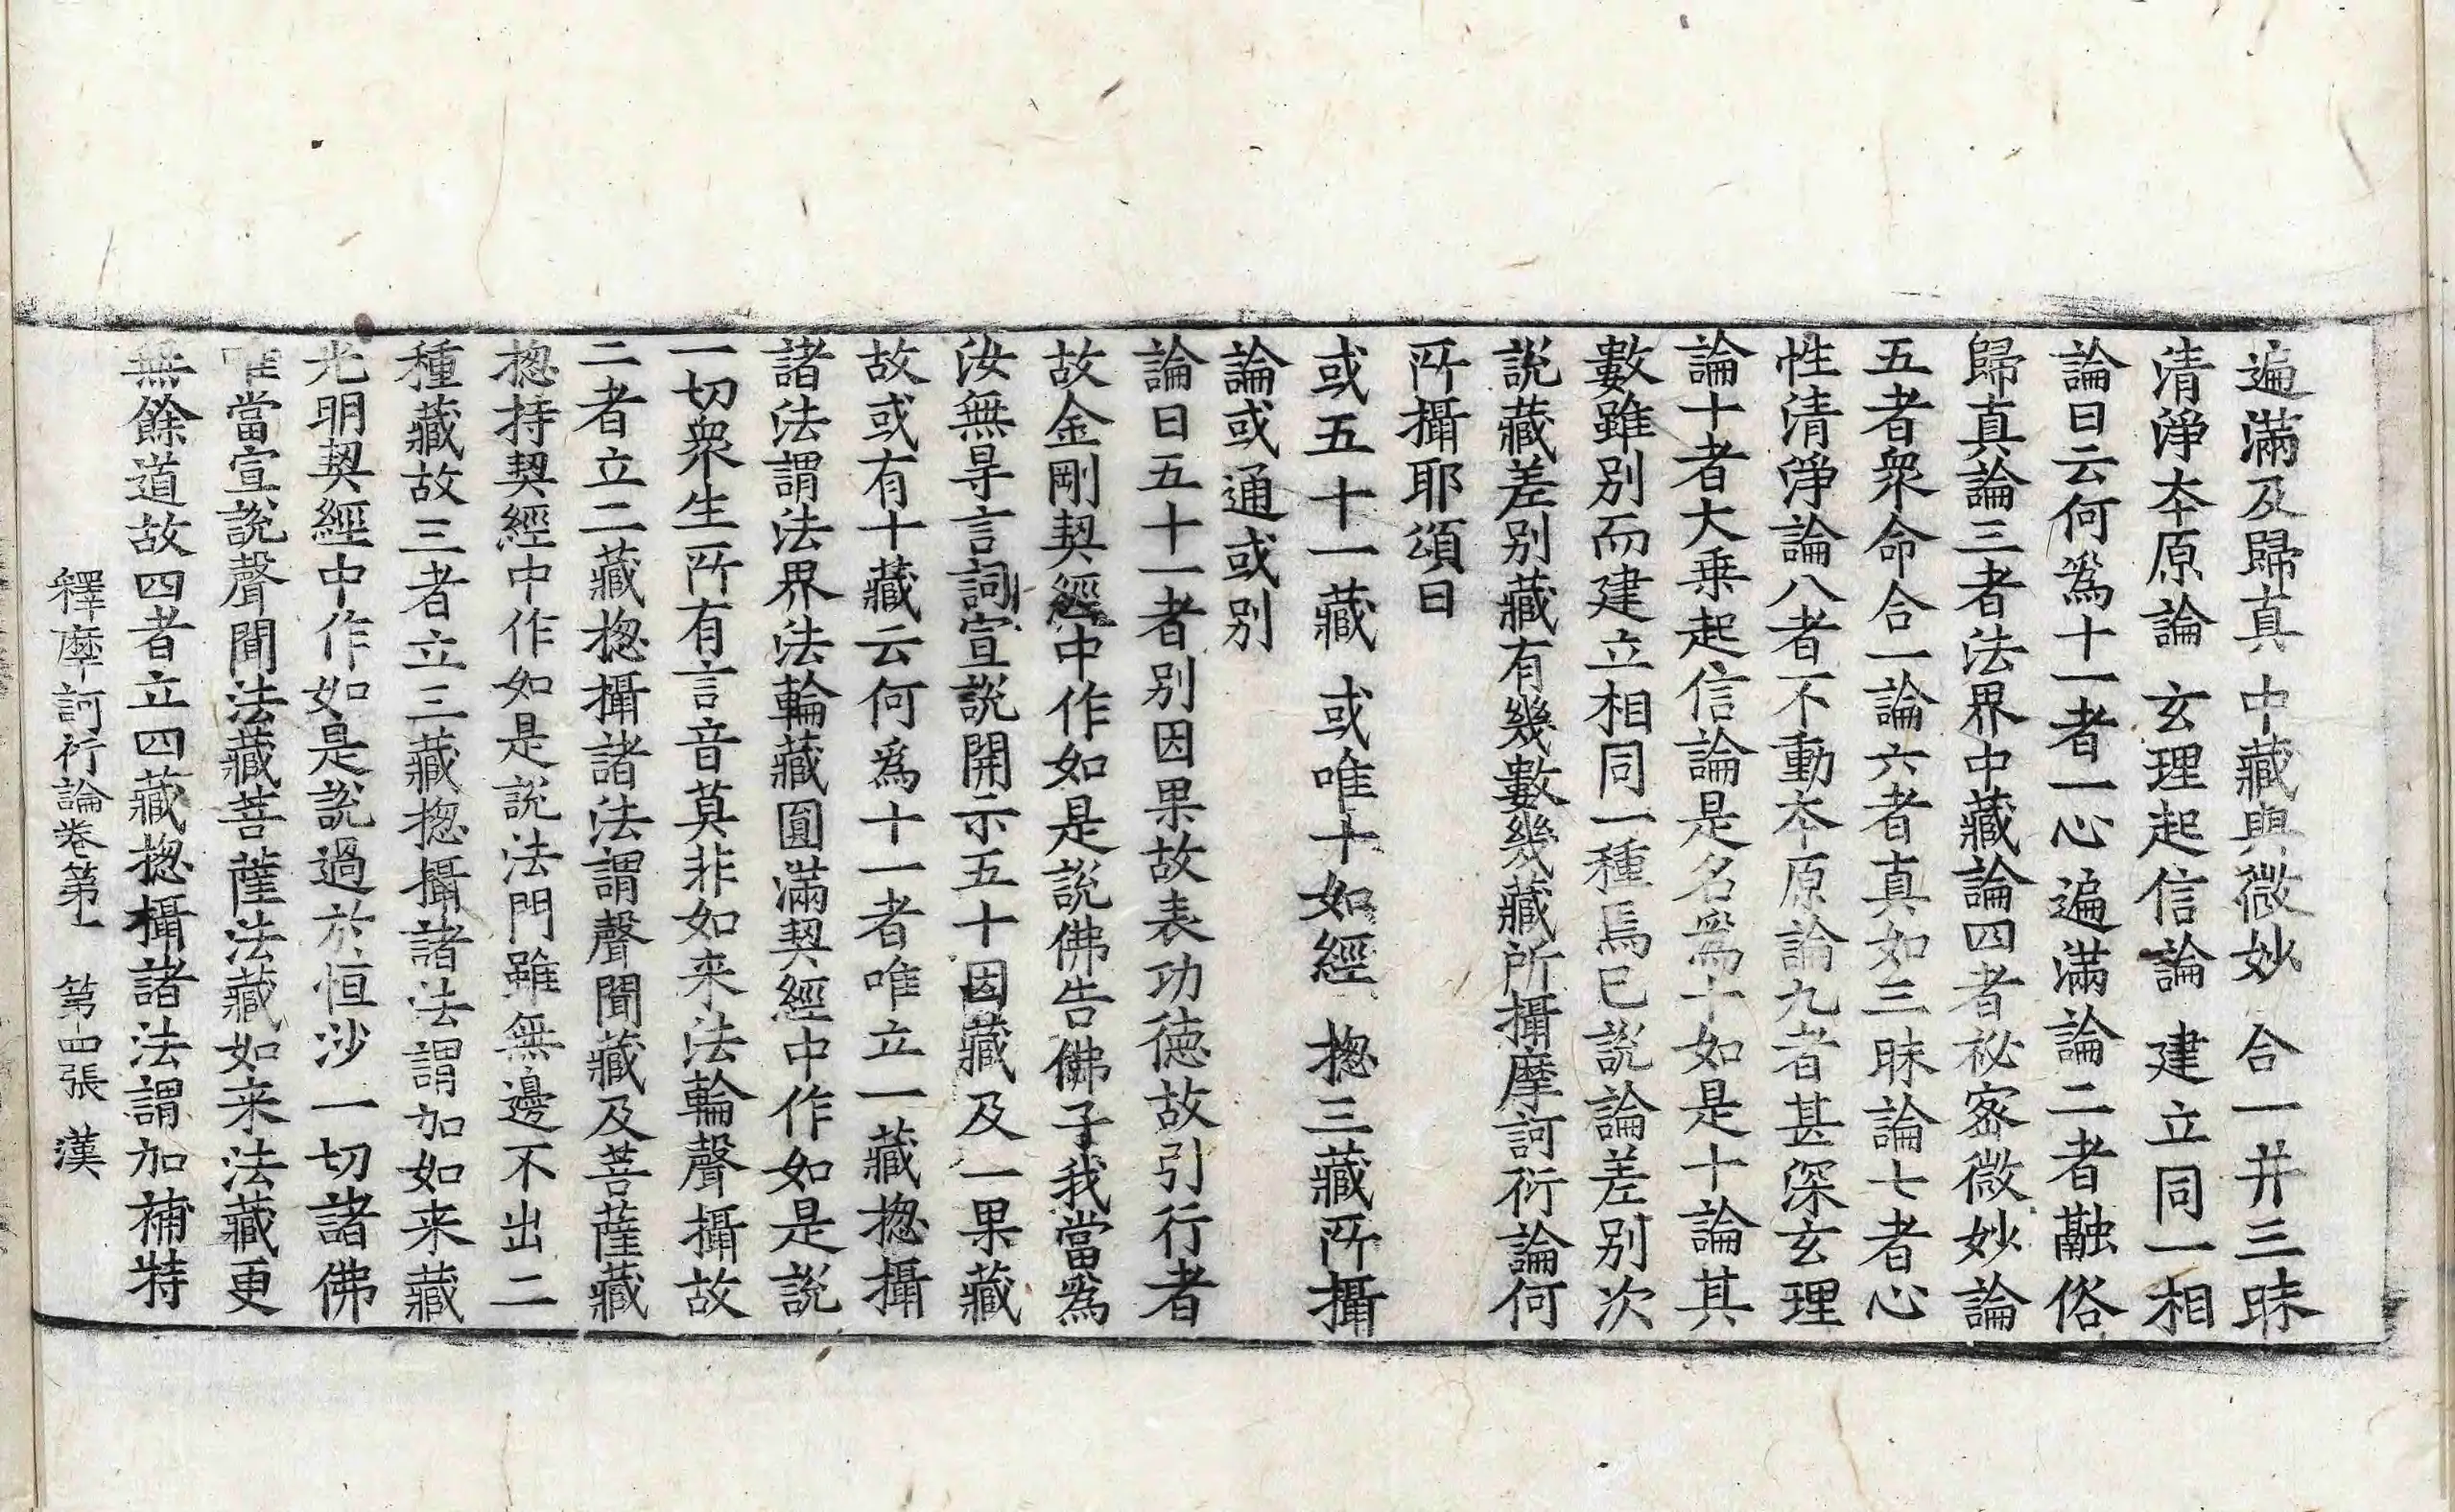 遍滿及歸真 中藏與微妙 合一并三昧
清淨本原論 玄理起信論 建立同一相
論曰云何爲十一者一心遍滿論二者融俗
歸真論三者法界中藏論四者祕密微妙論
五者衆命合一論六者真如三昧論七者心
性清淨論八者不動本原論九者甚深玄理
論十者大乗起信論是名爲十如是十論其
數雖別而建立相同一種焉已說論差別次
說藏差別藏有幾數幾藏所攝摩訶衍論何
所攝耶頌曰
或五十一藏 或唯十如經 捴三藏所攝
論或通或別
論曰五十一者別因果故表功德故引行者
故金剛契經中作如是說佛告佛子我當爲
汝無㝵言詞宣說開示五十因藏及一果藏
故或有十藏云何爲十一者唯立一藏捴攝
諸法謂法界法輪藏圓滿契經中作如是說
一切衆生所有言音莫非如来法輪聲攝故
二者立二藏捴攝諸法謂聲聞藏及菩薩藏
捴持契經中作如是說法門雖無邊不出二
種藏故三者立三藏捴攝諸法謂加如来藏
光明契經中作如是說過於恒沙一切諸佛
唯當宣說聲聞法藏菩薩法藏如来法藏更
無餘道故四者立四藏捴攝諸法謂加補特
釋摩訶衍論卷第一 第四張 漢